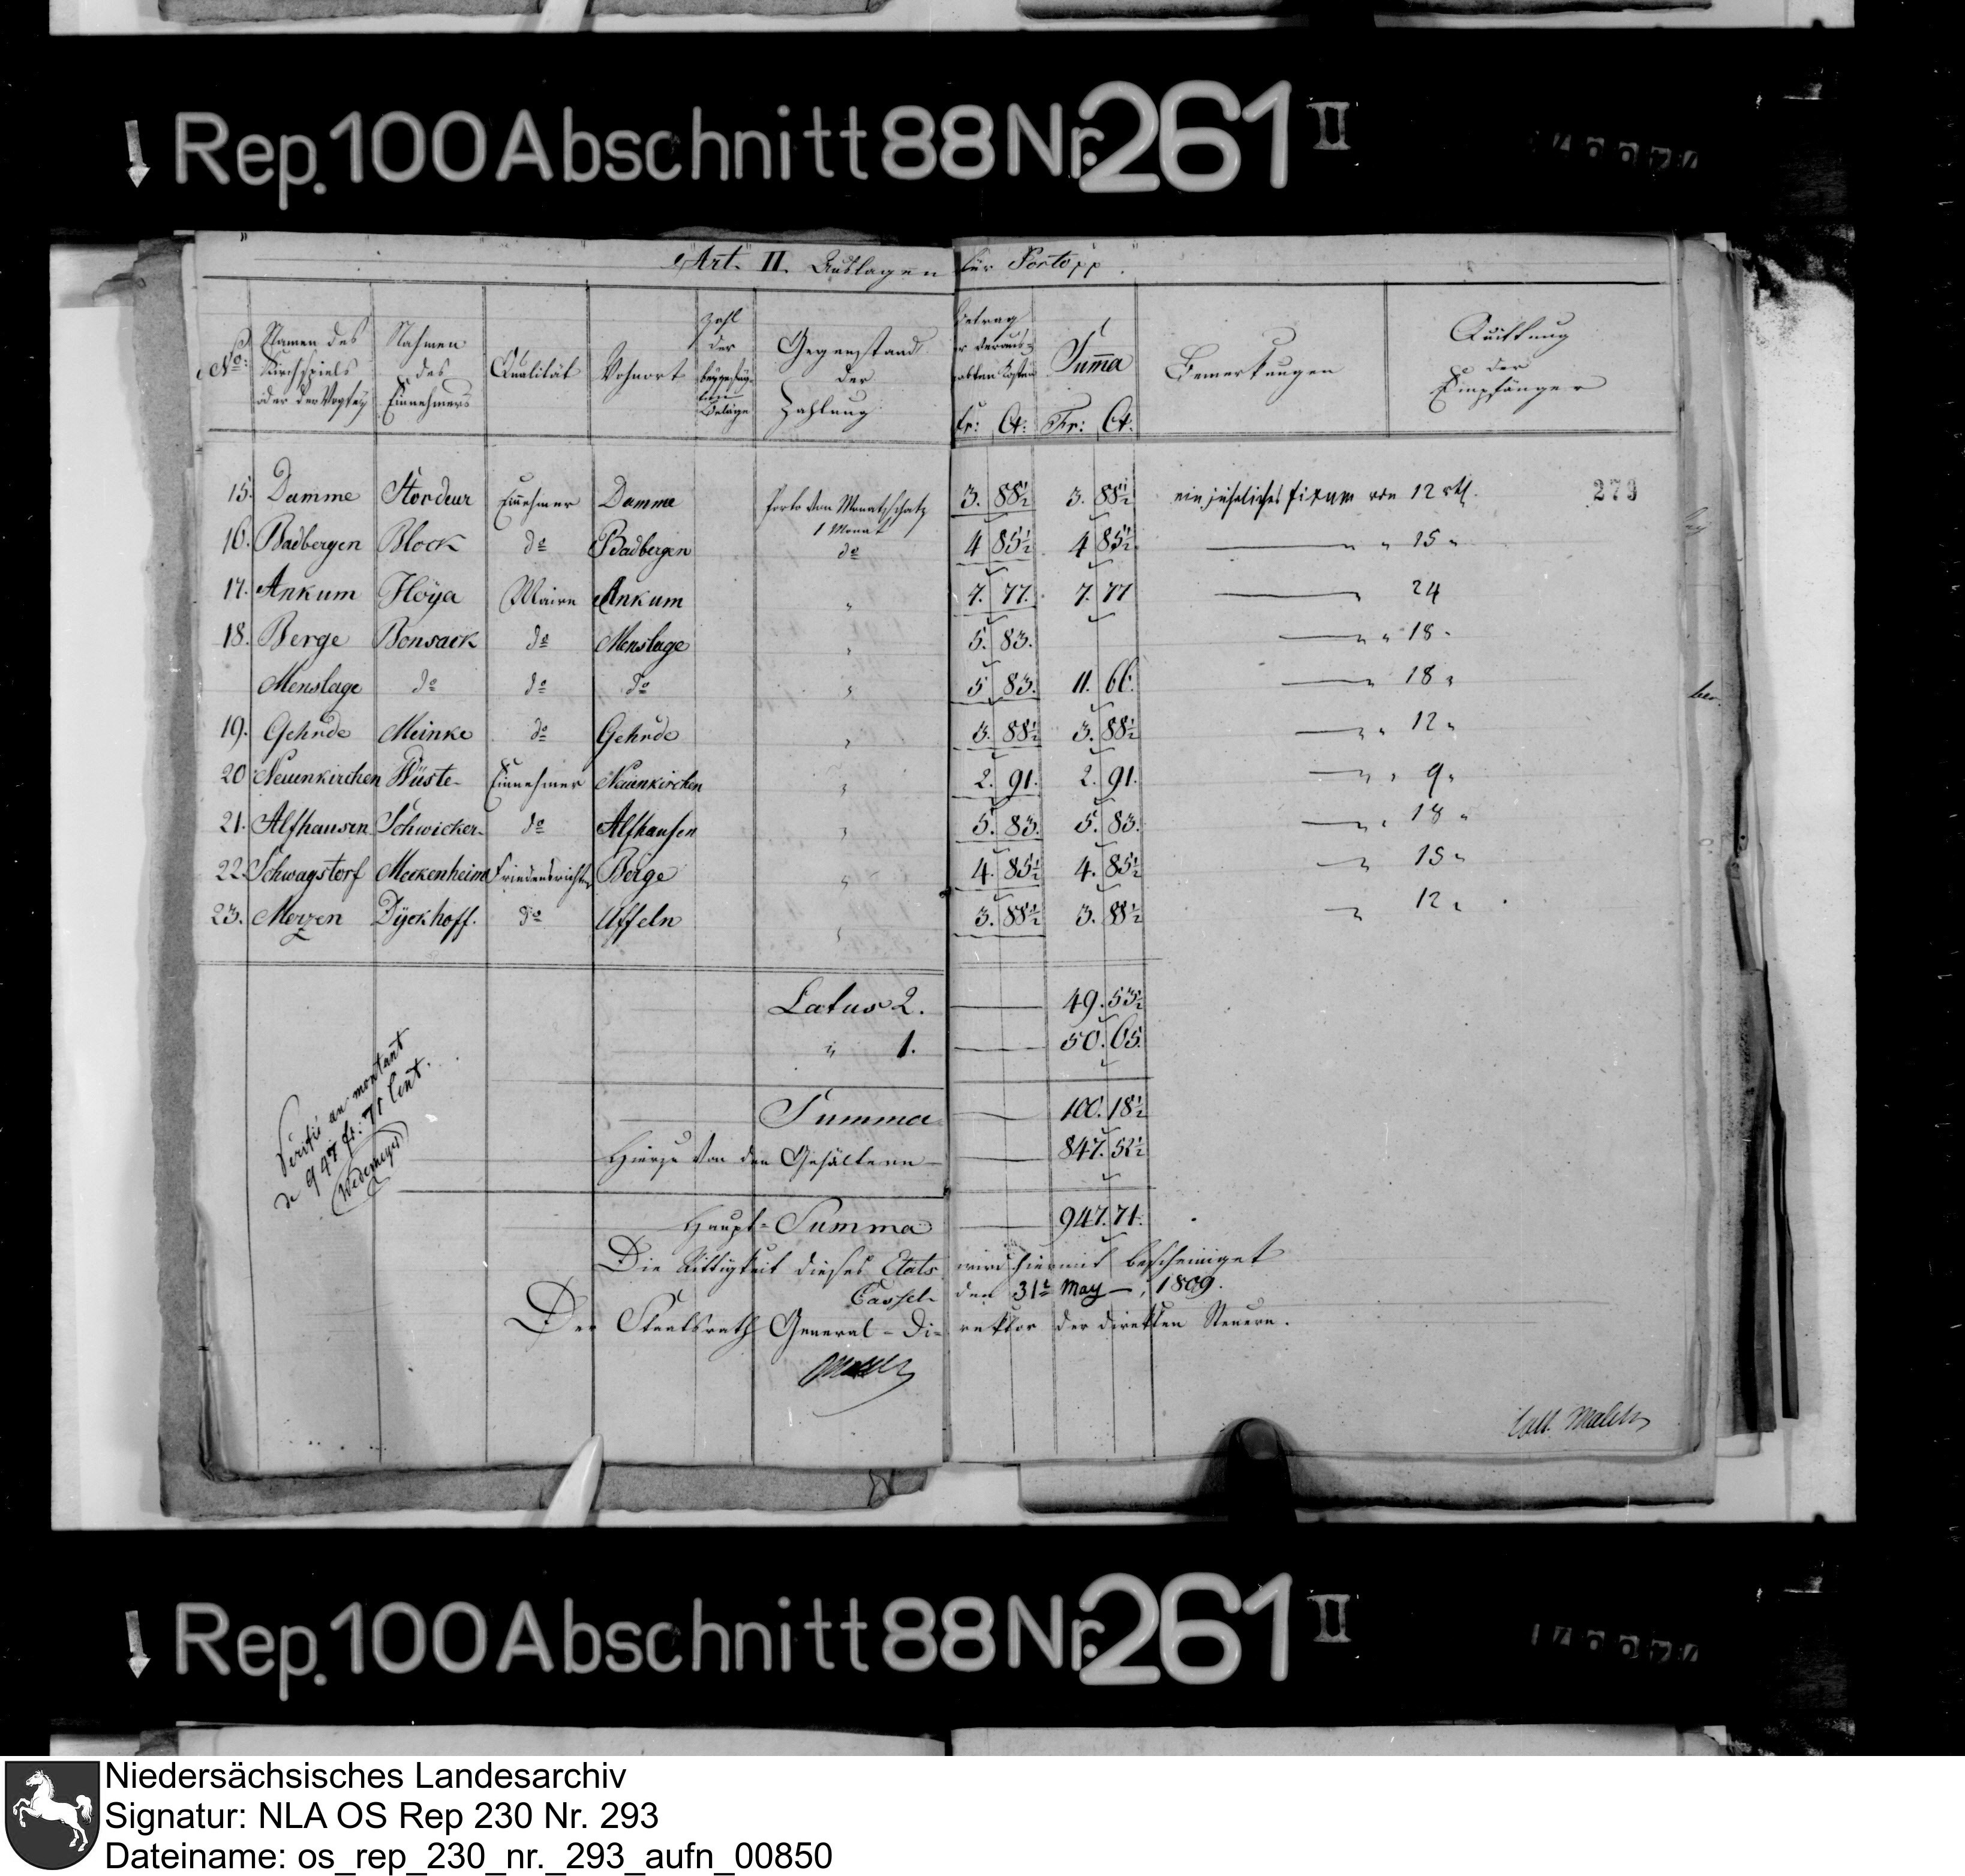 Rep. 100 Abschnitt 88 Nr. 261 II
Art. II. Auslagen für Porto pp.
No: Namen des Kirchspiels oder der Vogtey Nahmen des Einnehmers Qualität Wohnort Zahl der beygefügten Beläge Gegenstand der Zahlung Betrag der verausgabten Kosten Fr: Ct: Summa Fr: Ct. Bemerkungen Quittung der Empfänger
15. Damme Stordeur Einnehmer Damme Porto vom Monatschatz 1 Monat 3. 88½ 3. 88½ ein jährliches fixum von 12 rtl. 279
16. Badbergen Block do Badbergen do 4 85½ 4 85½ " " 15 "
17. Ankum Hoÿa Maire Ankum " 7. 77. 7. 77 " 24
18. Berge Bonsack do Menslage " 5. 83. " " 18 "
Menslage do do do " 5 83. 11. 66. " 18 "
19. Gehrde Meinke do Gehrde " 3. 88½ 3. 88½ " " 12 "
20 Neuenkirchen Wüste Einnehmer Neuenkirchen " 2. 91. 2. 91. " " 9 "
21. Alfhausen Schwicker do Alfhausen " 5. 83. 5. 83. " " 18 "
22. Schwagstorf Meckenheim Friedensrichter Berge " 4. 85½ 4. 85½ " 15 "
23. Merzen Dÿckhoff. do Uffeln " 3. 88½ 3. 88½ " 12 "
Latus 2. 49. 53½
" 1. 50. 65.
Summa 100. 18½
Hierzu von den Gehältern 847. 52½
Haupt-Summa 947. 71.
Verifié au montant
de 947 fr: 71 Cent.
Wedemeyer
Die Richtigkeit dieses Etats wird hiermit bescheiniget
Cassel den 31t May 1809.
Der Staatsrath General-Direktor der direkten Steuern.
Malchus
Coll. Malchus
Rep. 100 Abschnitt 88 Nr. 261 II
Niedersächsisches Landesarchiv
Signatur: NLA OS Rep 230 Nr. 293
Dateiname: os_rep_230_nr._293_aufn_00850